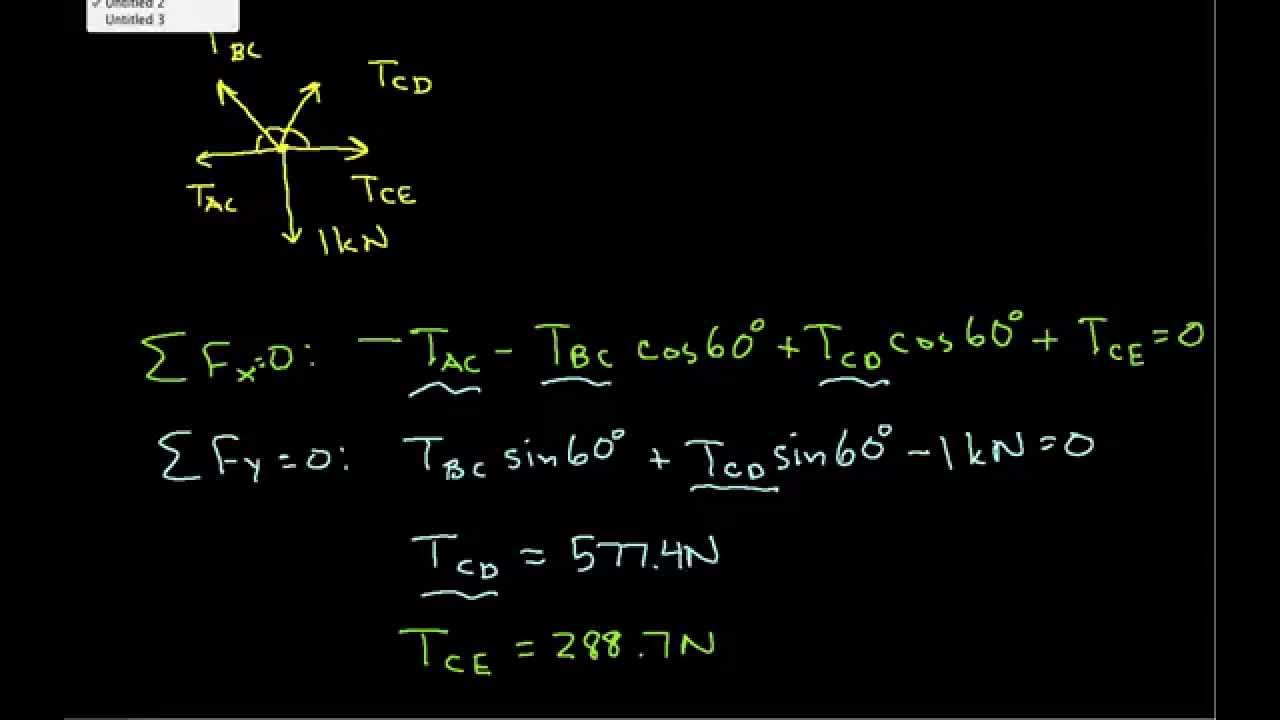 ✓ Untitled 2
Untitled 3
T BC
T CD
T AC
T CE
1kN
∑ Fx=0: - T AC - T BC cos60° + T CD cos60° + T CE = 0
∑ Fy = 0: T BC sin60° + T CD sin60° - 1kN = 0
T CD = 577.4N
T CE = 288.7N